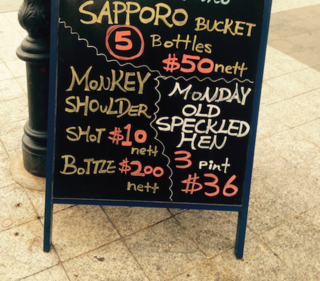 SAPPORO BUCKET
5 Bottles
$50 nett
MONKEY
SHOULDER
SHOT $10
nett
BOTTLE $200
nett
MONDAY
OLD
SPECKLED
HEN
3 Pint
$36